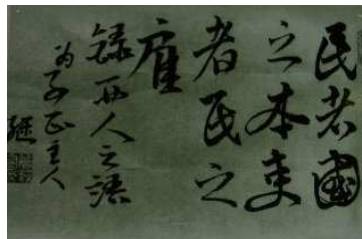 民者國
之本吏
者民之
雇
録西人之語
为子正主人
继